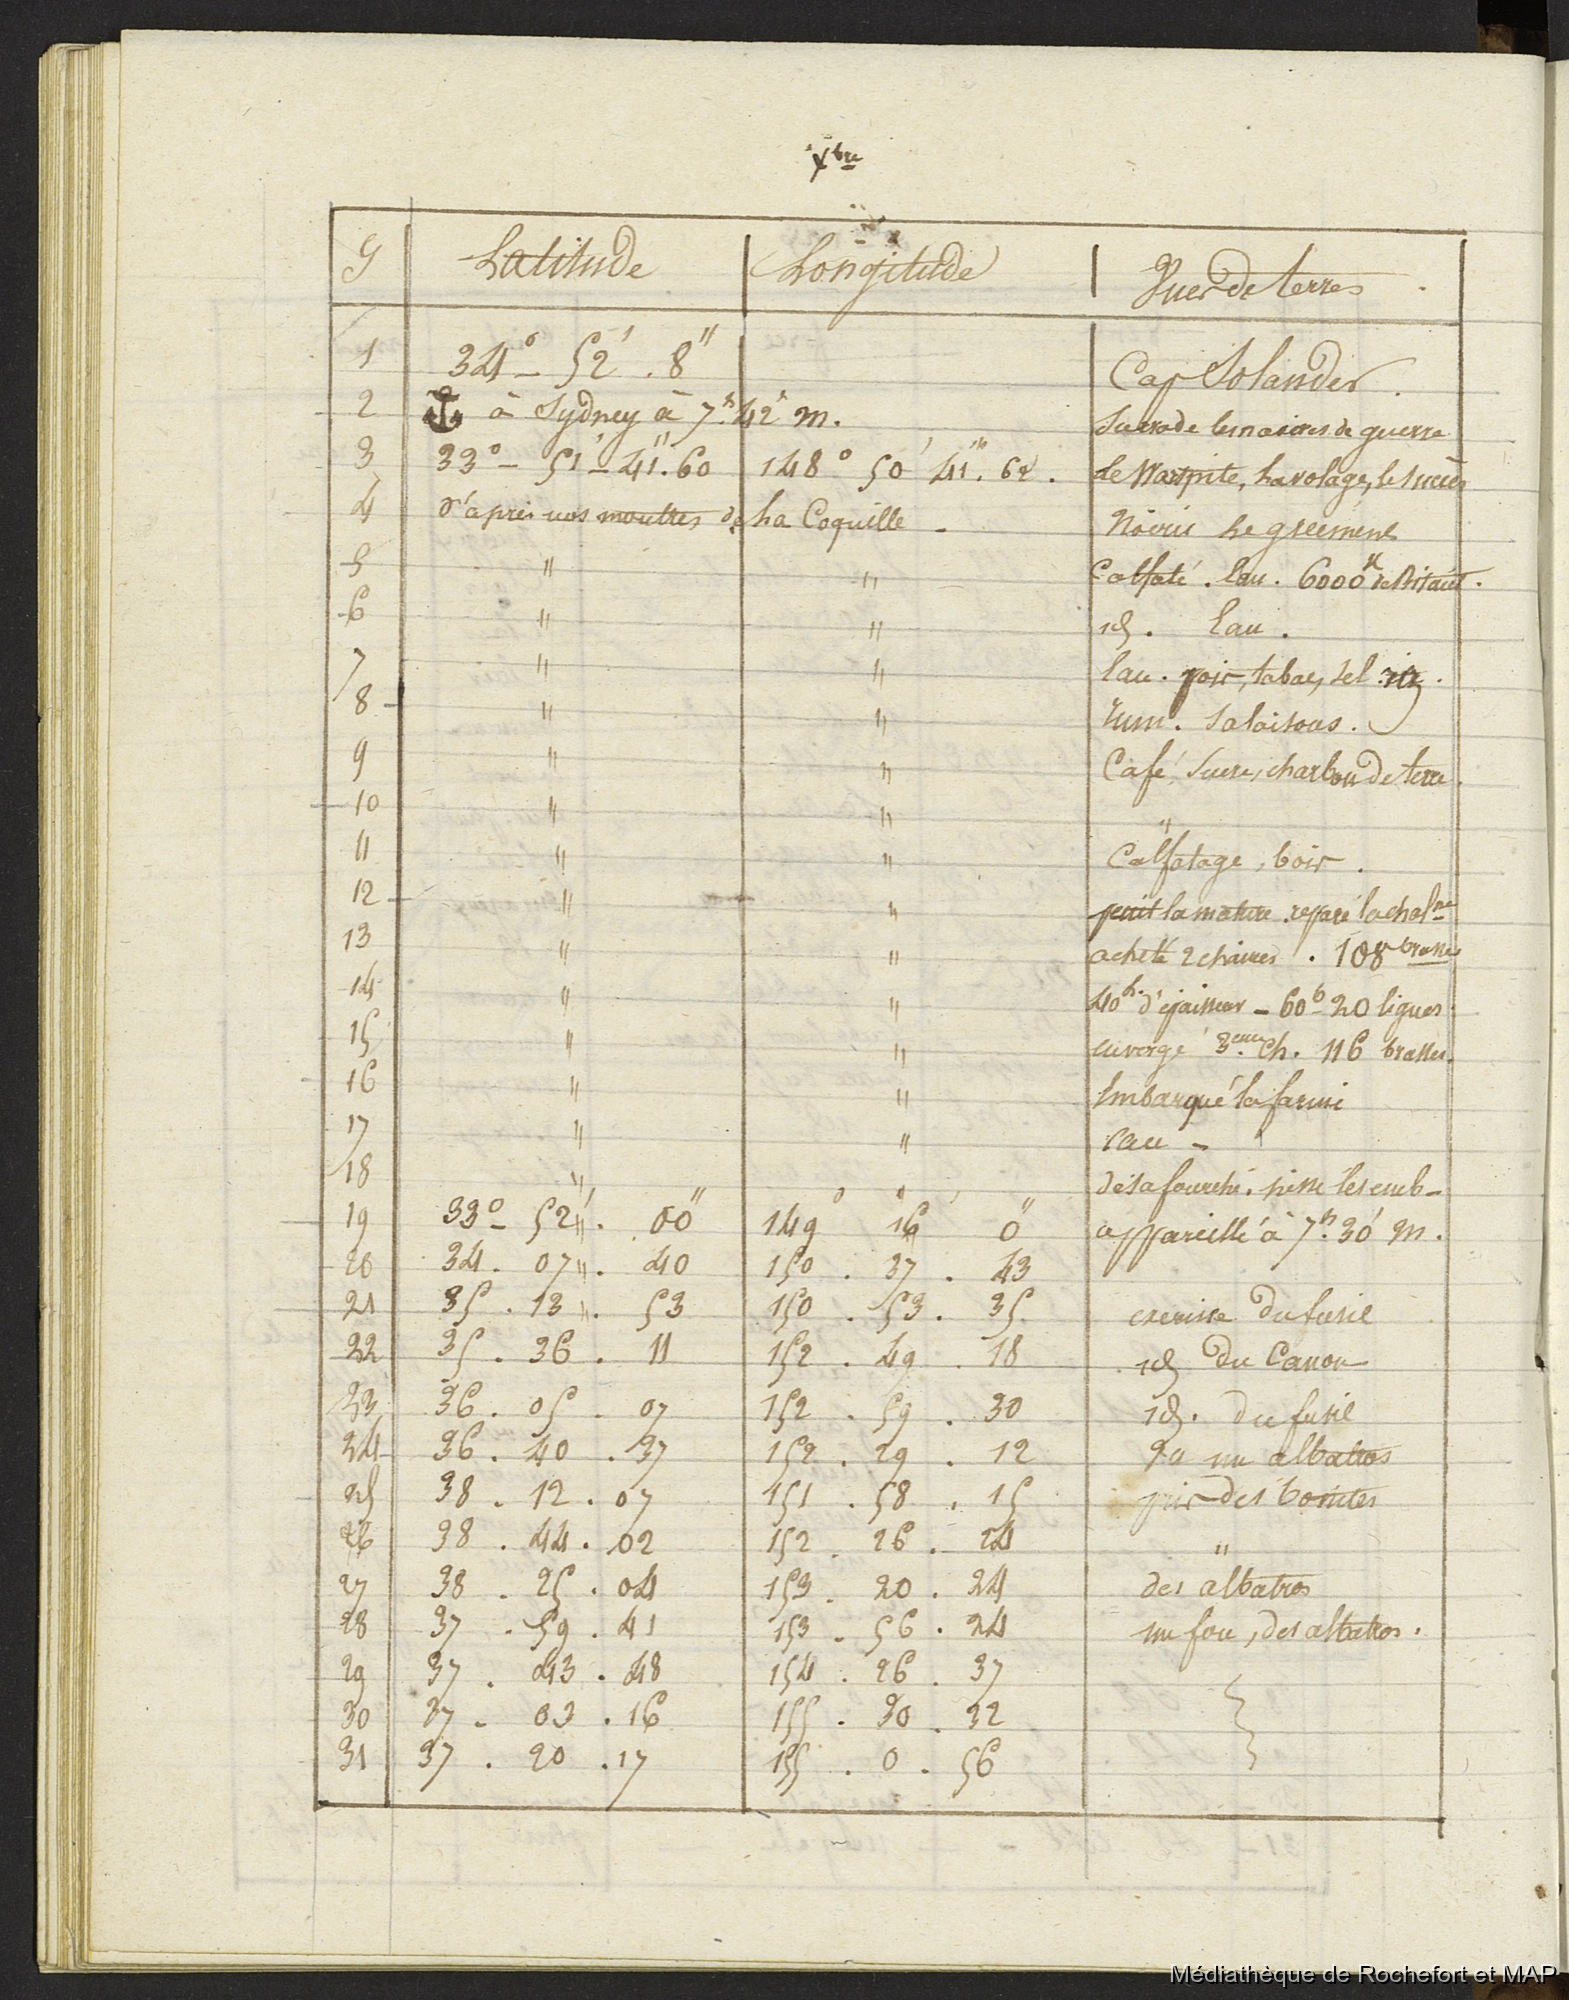 Xbre
J Latitude Longitude Vues de terres
1 34° - 52' . 8" Cap Solander .
2 ⚓ à Sydney à 7h 42' m. Sur rade les navires de guerre
3 33° - 51' - 41". 60 148° 50' 41". 62 . Le Warspite, La volage, le succès
4 d'après nos montres de La Coquille - Noirci le gréement
5 " " Calfaté . l'au . 6000# de Biscuit .
6 " " id . l'au .
7 " " l'au . pois, tabac, sel riz .
8 - " " rum . Salaisons .
9 " " Café, Sucre, charbon de terre .
10 " " "
11 " " Calfatage, bois .
12 " " peint la mature . réparé la chalpe
13 " " acheté 2 chaines . 108 brasses
14 " " 40 h. d'épaisseur - 60 b 20 lignes .
15 " " envergé 3eme ch. 116 brasses .
16 " " Embarqué la farine
17 " " eau -
18 " " désafourché . hissé les emb -
19 33° - 52' . 00" 149° 16' 0" appareillé à 7h 30' m .
20 34 . 07 . 40 150 . 37 . 43
21 35 . 13 . 53 150 . 53 . 35 exercisse du fusil
22 35 . 36 . 11 152 . 49 . 18 id du Canon
23 36 . 05 . 07 152 . 59 . 30 id . du fusil
24 36 . 40 . 37 152 . 29 . 12 Vu un albatros
25 38 . 12 . 07 151 . 58 . 15 pris des bonites
26 38 . 44 . 02 152 . 26 . 24 "
27 38 . 25 . 04 153 . 20 . 24 des albatros
28 37 . 59 . 41 153 . 56 . 24 un fou, des albatros .
29 37 . 43 . 48 154 . 26 . 37
30 37 . 03 . 16 155 . 30 . 32
31 37 . 20 . 17 155 . 0 . 56
Médiathèque de Rochefort et MAP